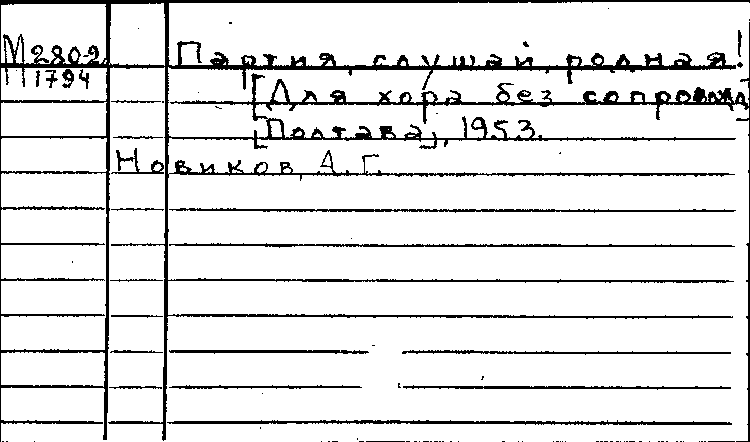 М 280-2
П 1794
Партия, слушай, родная!
[Для хора без сопровожд]
[Полтава], 1953.
Новиков, А. Г.